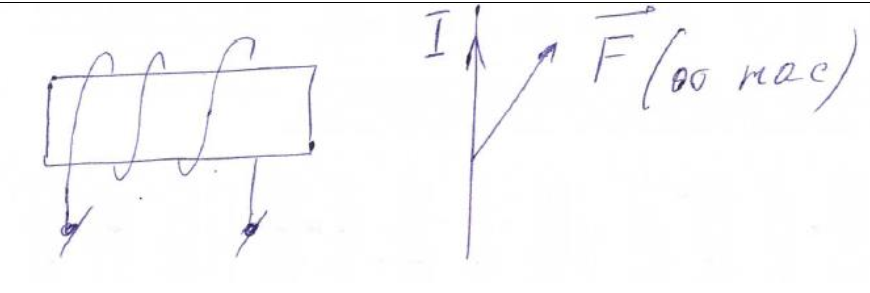 I
F (от нас)